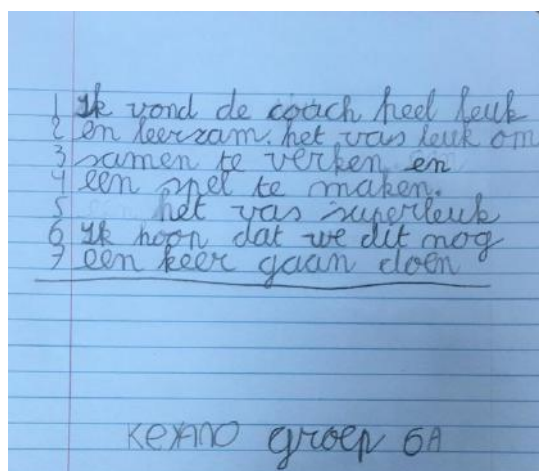 1 Ik vond de coach heel leuk
2 en leerzam. het vas leuk om
3 samen te verken en
4 een spel te maken.
5 het vas superleuk
6 Ik hoop dat we dit nog
7 een keer gaan doen
groep 6A